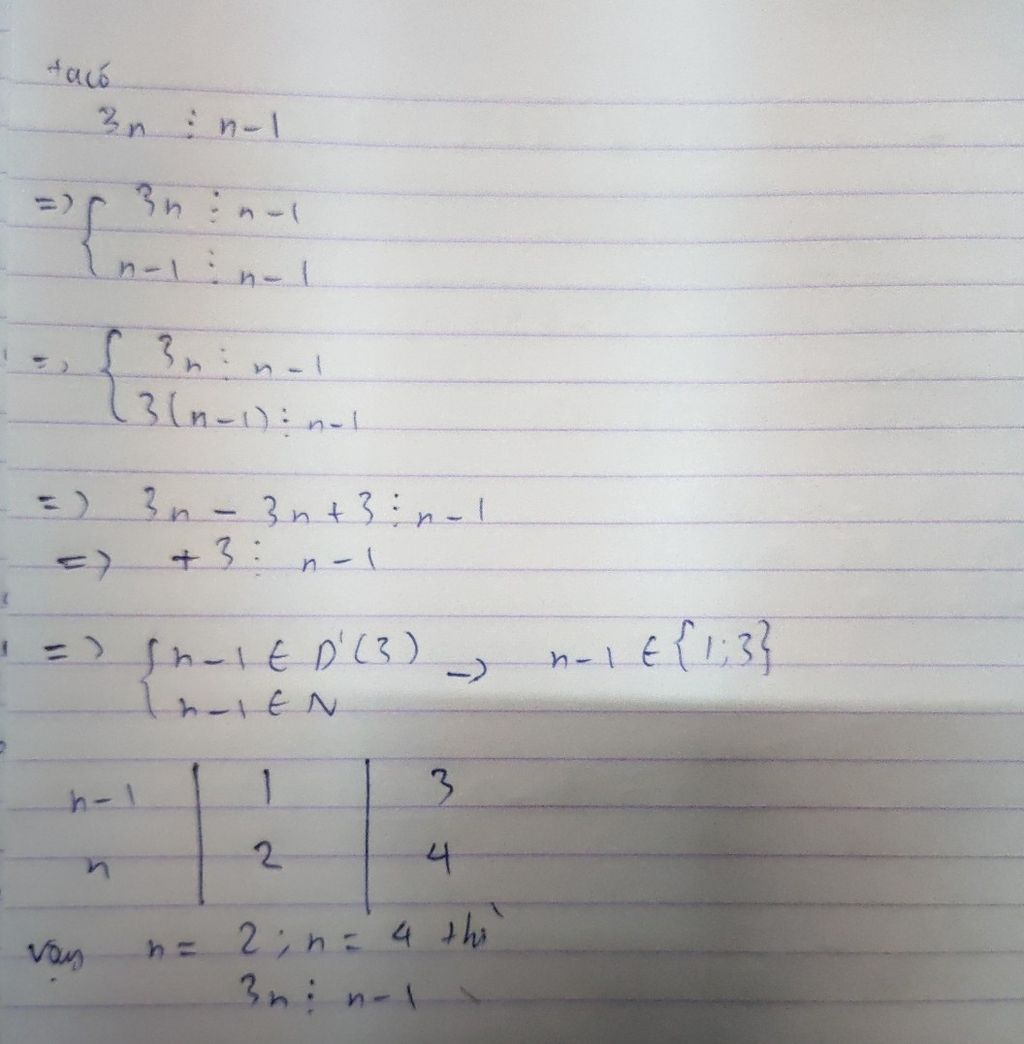 ta có
3n ⋮ n-1
=> { 3n ⋮ n-1
n-1 ⋮ n-1
=> { 3n ⋮ n-1
3(n-1) ⋮ n-1
=> 3n - 3n + 3 ⋮ n-1
=> +3 ⋮ n-1
=> { n-1 ∈ Ư(3) -> n-1 ∈ {1;3}
n-1 ∈ N
n-1 | 1 | 3
n | 2 | 4
vậy n = 2 ; n = 4 thì
3n ⋮ n-1